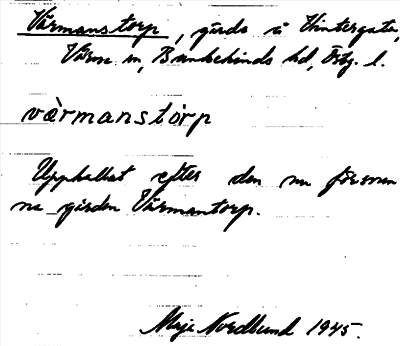 Vårmanstorp, gårds i Vintergata,
Vårn sn, Bankekinds hd, Östg. l.
vàrmanstòrp
Upphallat efter den nu försvun
na gården Vårmantorp.
Maja Nordlund 1945.